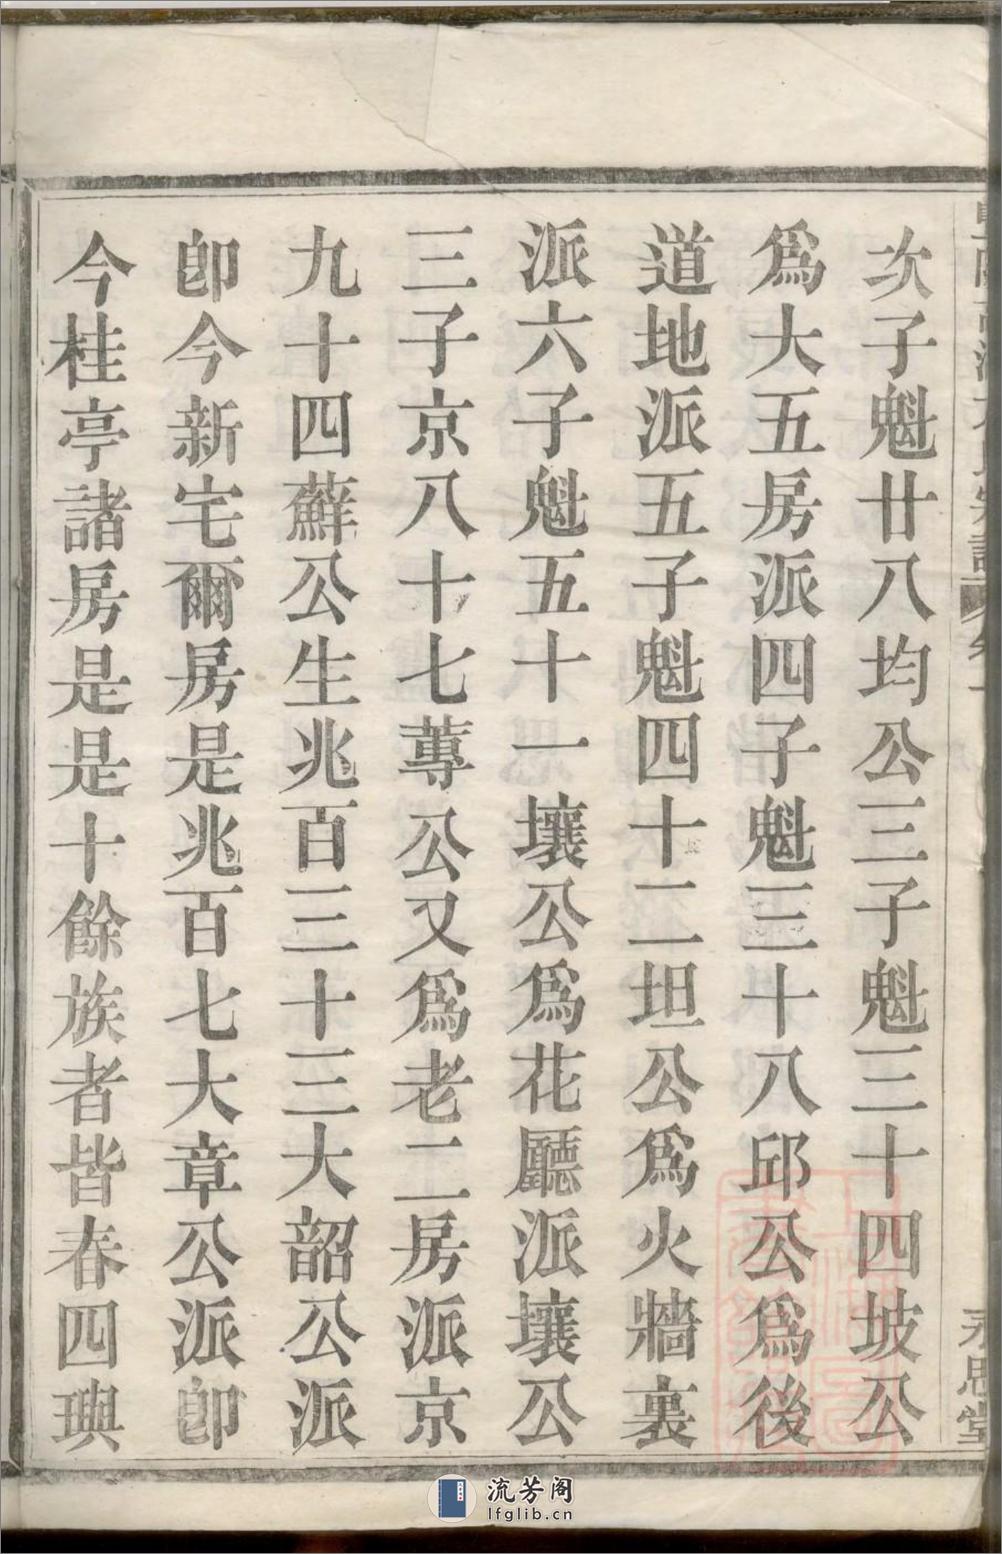 次子魁廿八均公三子魁三十四坡公
爲大五房派四子魁三十八邱公爲後
道地派五子魁四十二坦公爲火牆裏
派六子魁五十一壤公爲花廳派壤公
三子京八十七蓴公又爲老二房派京
九十四蘇公生兆百三十三大韶公派
卽今新宅爾房是兆百七大章公派卽
今桂亭諸房是是十餘族者皆春四璵
永思堂
流芳阁
lfglib.cn